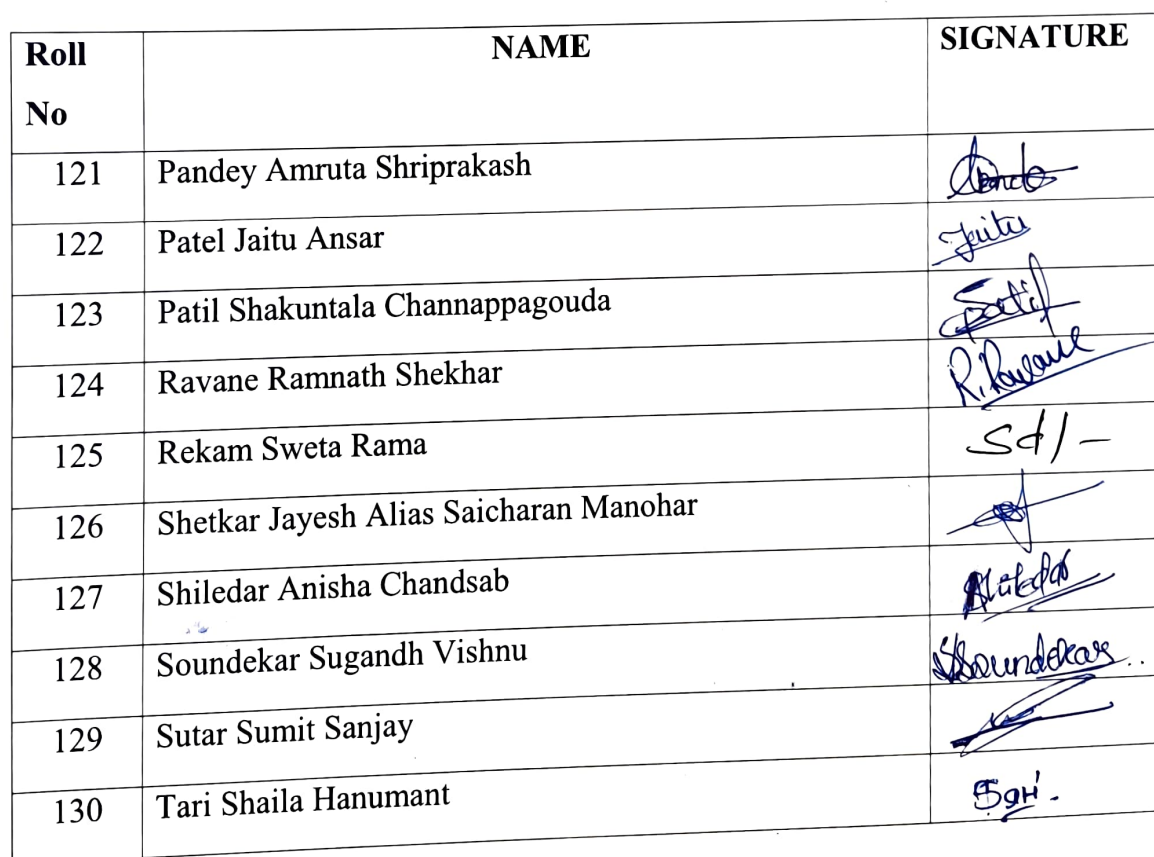 Roll No NAME SIGNATURE
121 Pandey Amruta Shriprakash
122 Patel Jaitu Ansar Jaitu
123 Patil Shakuntala Channappagouda Patil
124 Ravane Ramnath Shekhar R. Ravane
125 Rekam Sweta Rama Sd/-
126 Shetkar Jayesh Alias Saicharan Manohar
127 Shiledar Anisha Chandsab Shiledar
128 Soundekar Sugandh Vishnu Soundekar
129 Sutar Sumit Sanjay
130 Tari Shaila Hanumant